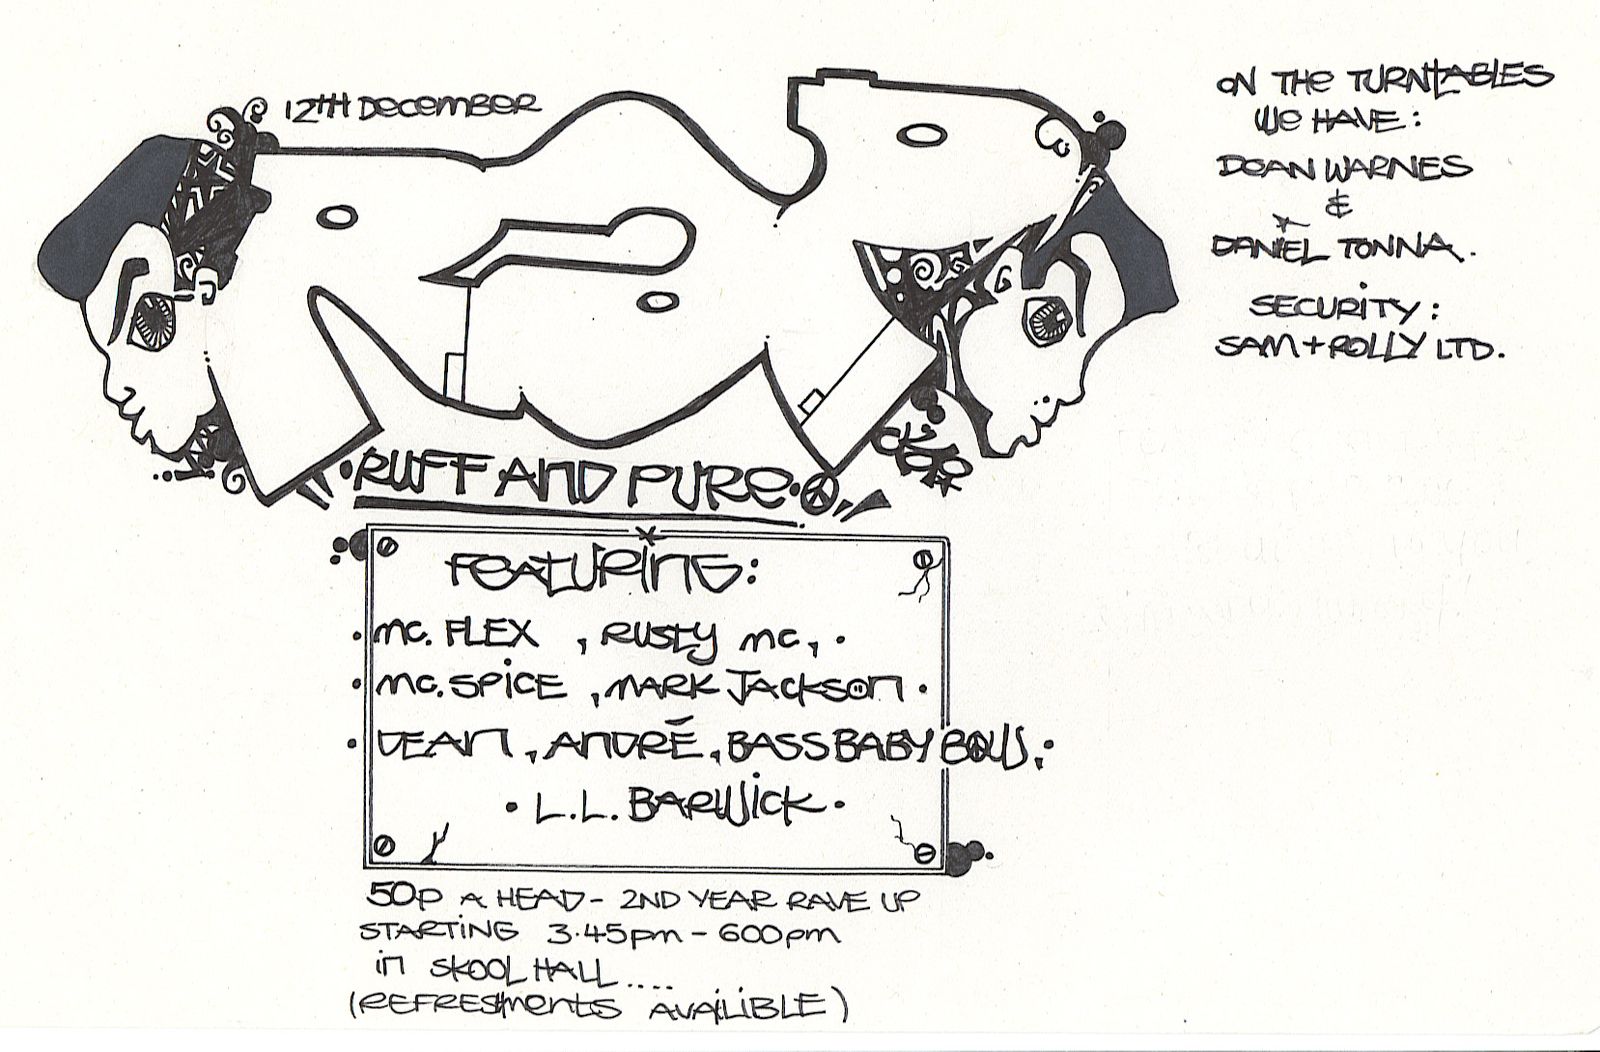 12TH DECEMBER
ON THE TURNTABLES
WE HAVE:
DEAN WARNES
&
DANIEL TONNA.
SECURITY:
SAM + ROLLY LTD.
RUFF AND PURE
FEATURING:
MC. FLEX , RUSTY MC, .
MC. SPICE , MARK JACKSON .
DEAN , ANDRÉ , BASS BABY
. L.L. BARWICK .
50p A HEAD - 2ND YEAR RAVE UP
STARTING 3.45pm - 600pm
in SKOOL HALL ....
(REFRESHMENTS AVAILIBLE)